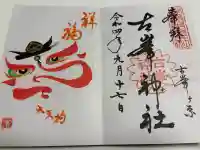 奉拝
古峯ヶ原
古峯神社
令和四年九月十七日
祥
福
天狗